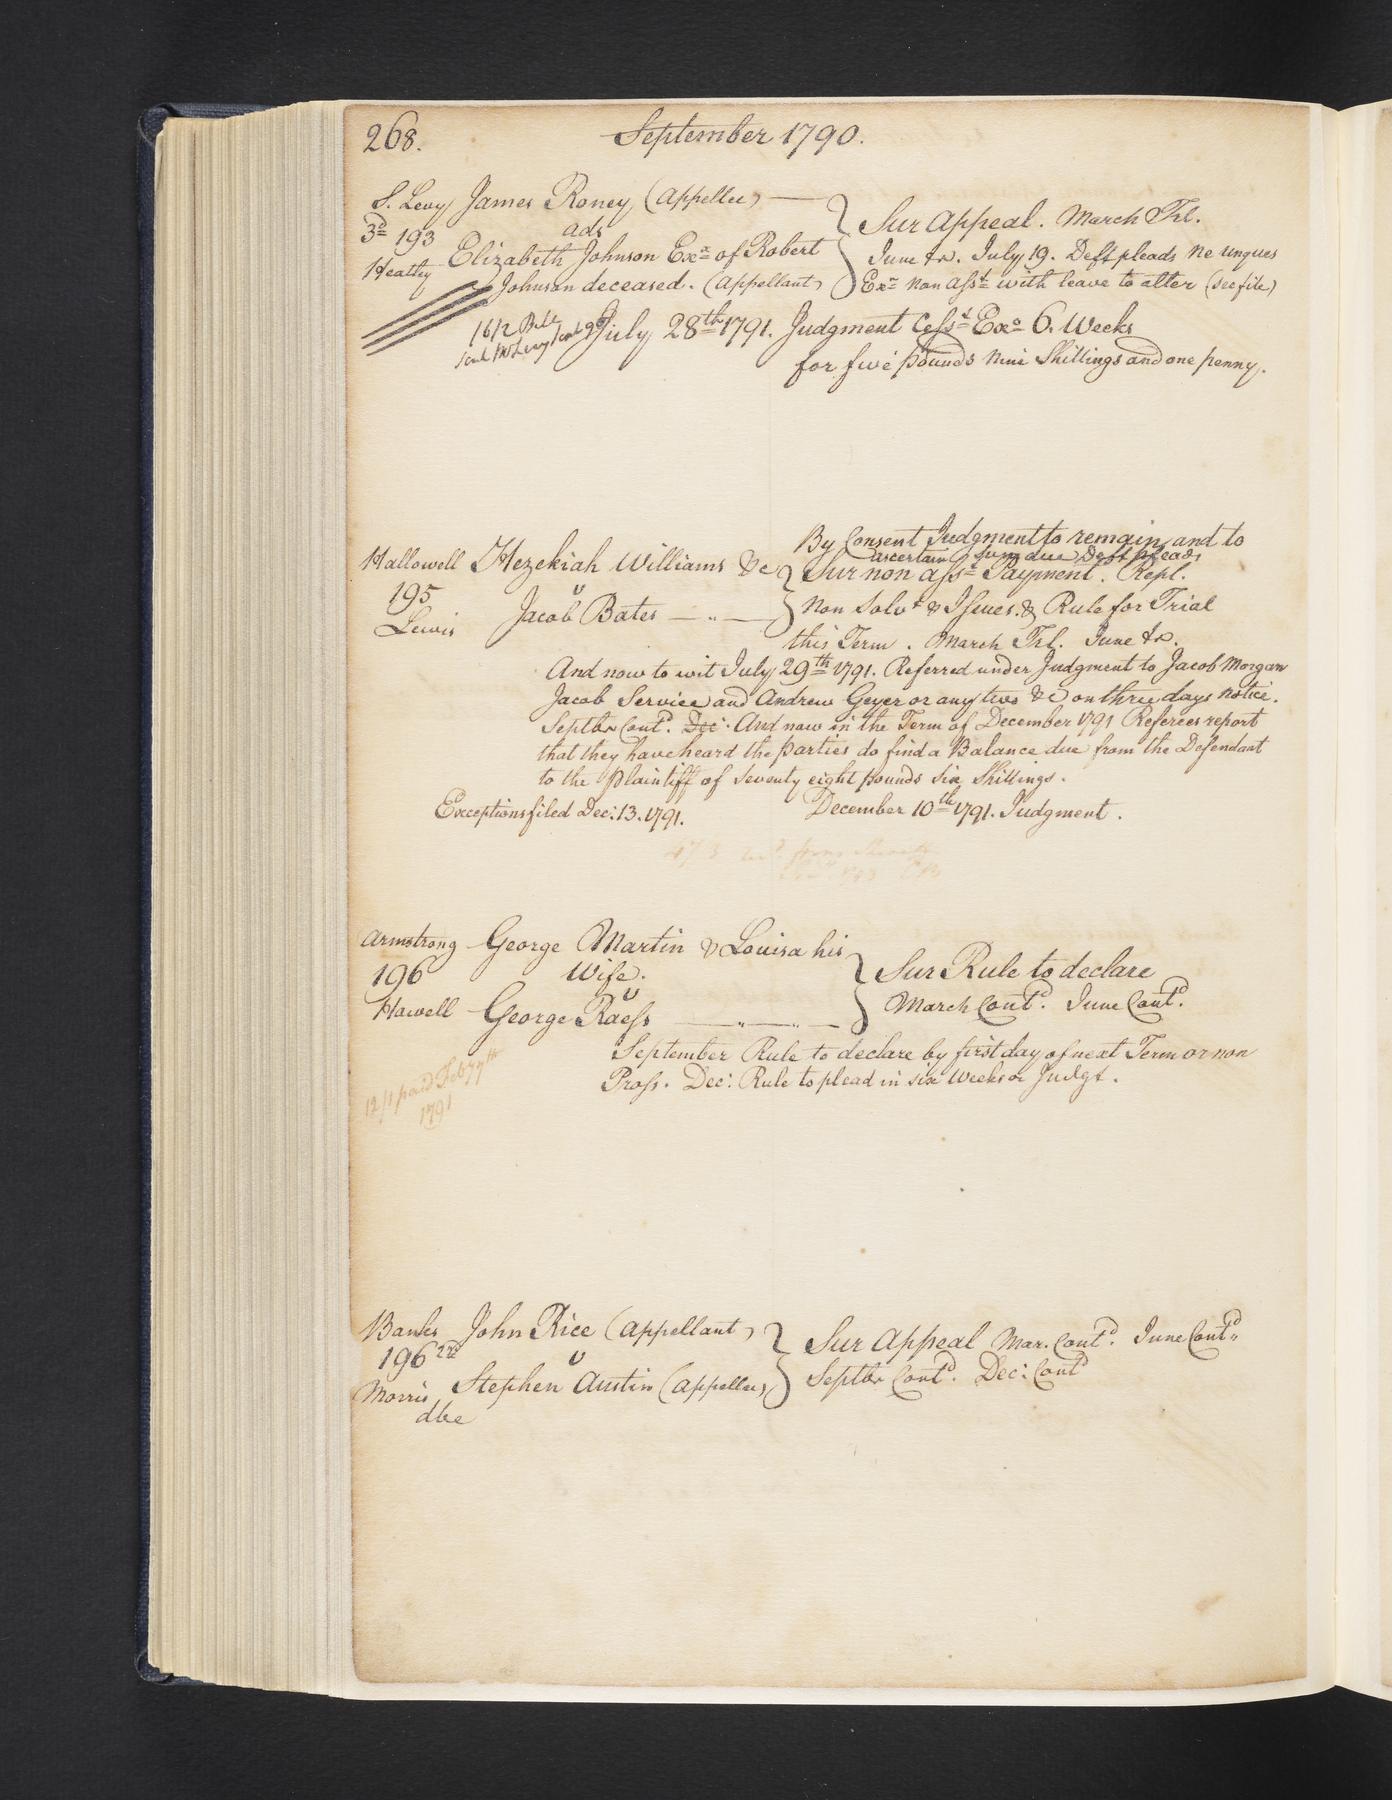 268. September 1790.
S. Levy James Roney (Appellee)
3d 193 ads
Heatly Elizabeth Johnson Exx of Robert
Johnson deceased. (Appellant)
Sur Appeal. March Trl.
June &c. July 19. Deft pleads Ne unques
Exr non Asst with leave to alter (see file)
16/2 Bill
July 28th 1791. Judgment Cesst Exo 6. Weeks
for five pounds Nine Shillings and one penny.
By Consent Judgment to remain, and to
ascertain sum due Deft pleads
Hallowell Hezekiah Williams &c Sur non Asst Payment. Repl.
195 v
Lewis Jacob Bates Non Solvt & Issues. & Rule for Trial
this Term. March Trl. June &c.
And now to wit July 29th 1791. Referred under Judgment to Jacob Morgan
Jacob Service and Andrew Geyer or any two &c on three days notice.
Septbr Contd. Dec: And now in the Term of December 1791 Referees report
that they have heard the parties do find a Balance due from the Defendant
to the Plaintiff of Seventy eight pounds Six Shillings.
Exceptions filed Dec: 13. 1791. December 10th 1791. Judgment.
Armstrong George Martin & Louisa his
196 Wife. Sur Rule to declare
v
Howell George Raess March Contd. June Contd.
September Rule to declare by first day of next Term or non
Pross. Dec: Rule to plead in six Weeks or Judgt.
12/1 paid Feby 7th
1791
Banks John Rice (Appellant) Sur Appeal Mar. Contd. June Contd.
196 2nd v
Morris Stephen Austin (Appellee) Septbr Contd. Dec: Contd
dbe